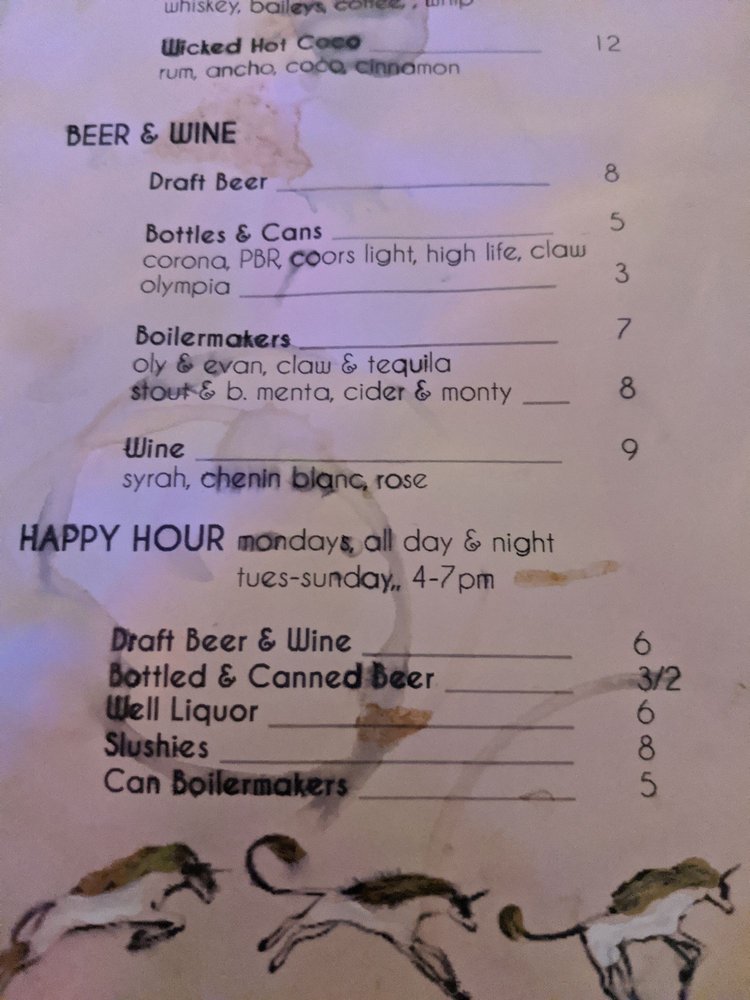 whiskey, baileys, coffee, , whip
Wicked Hot Coco 12
rum, ancho, coco, cinnamon
BEER & WINE
Draft Beer 8
Bottles & Cans 5
corona, PBR, coors light, high life, claw
olympia 3
Boilermakers 7
oly & evan, claw & tequila
stout & b. menta, cider & monty 8
Wine 9
syrah, chenin blanc, rose
HAPPY HOUR mondays, all day & night
tues-sunday,, 4-7pm
Draft Beer & Wine 6
Bottled & Canned Beer 3/2
Well Liquor 6
Slushies 8
Can Boilermakers 5